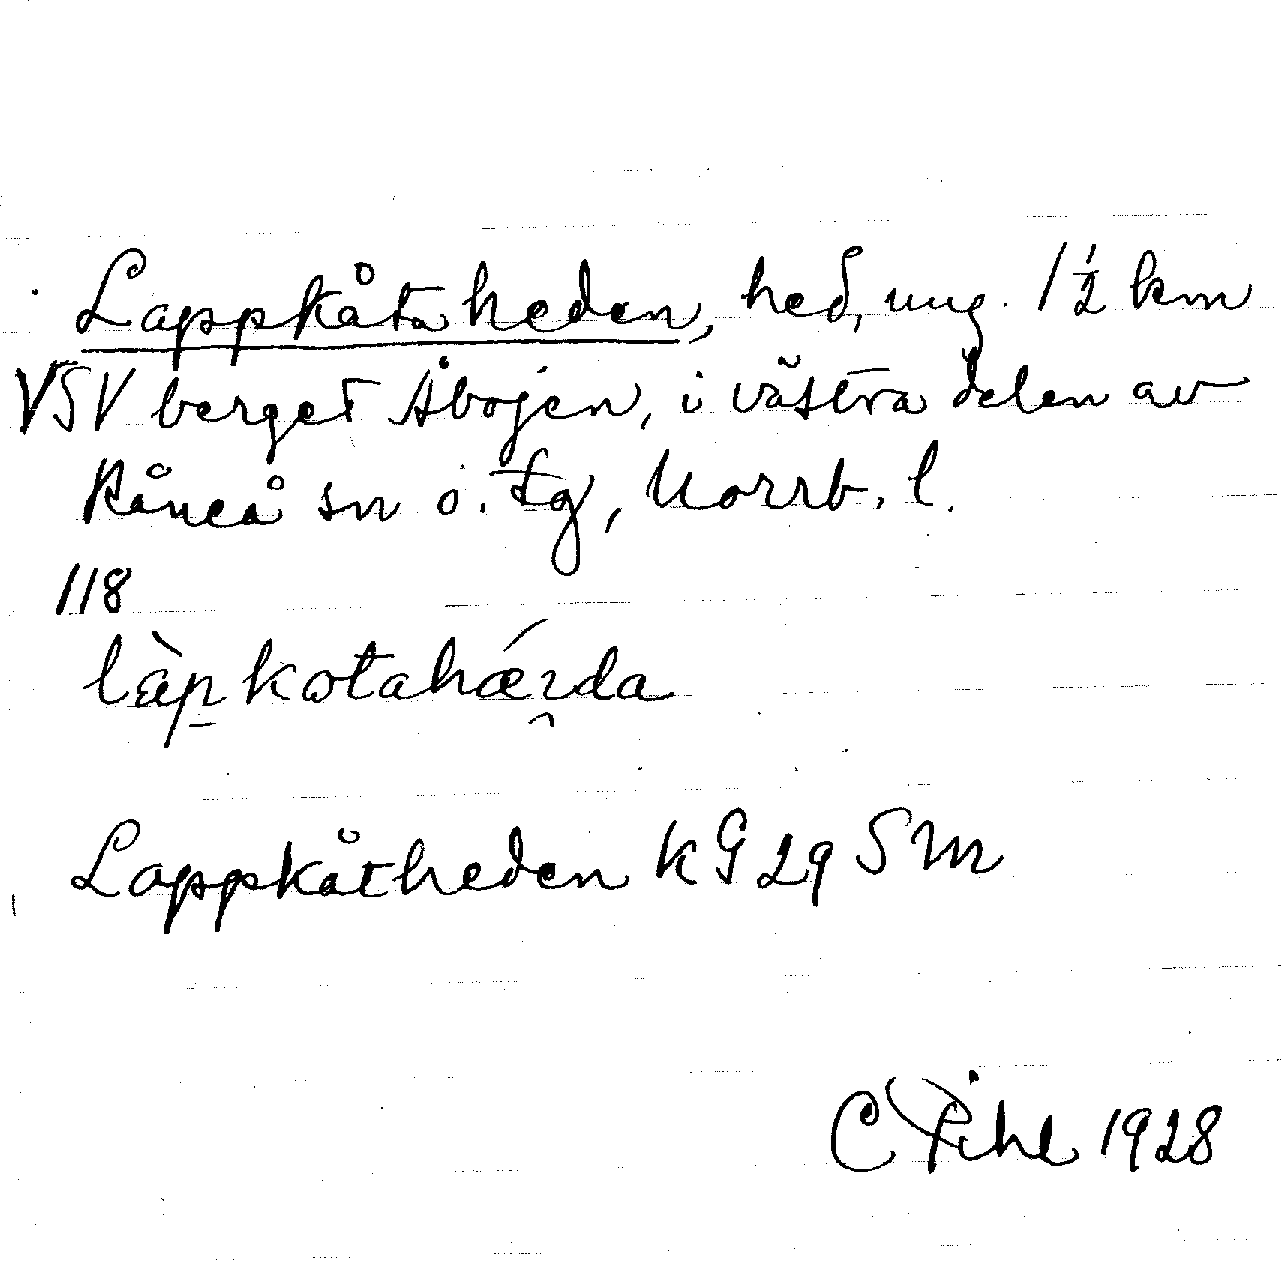 Lappkåtaheden, hed, ung. 1½ km
VSV berget Åbojen, i västra delen av
Råneå sn o. tg, Norrb. l.
118
làp̠kotahǽɪ̯da
Lappkåtheden KG 29 SM
C Pihl 1928